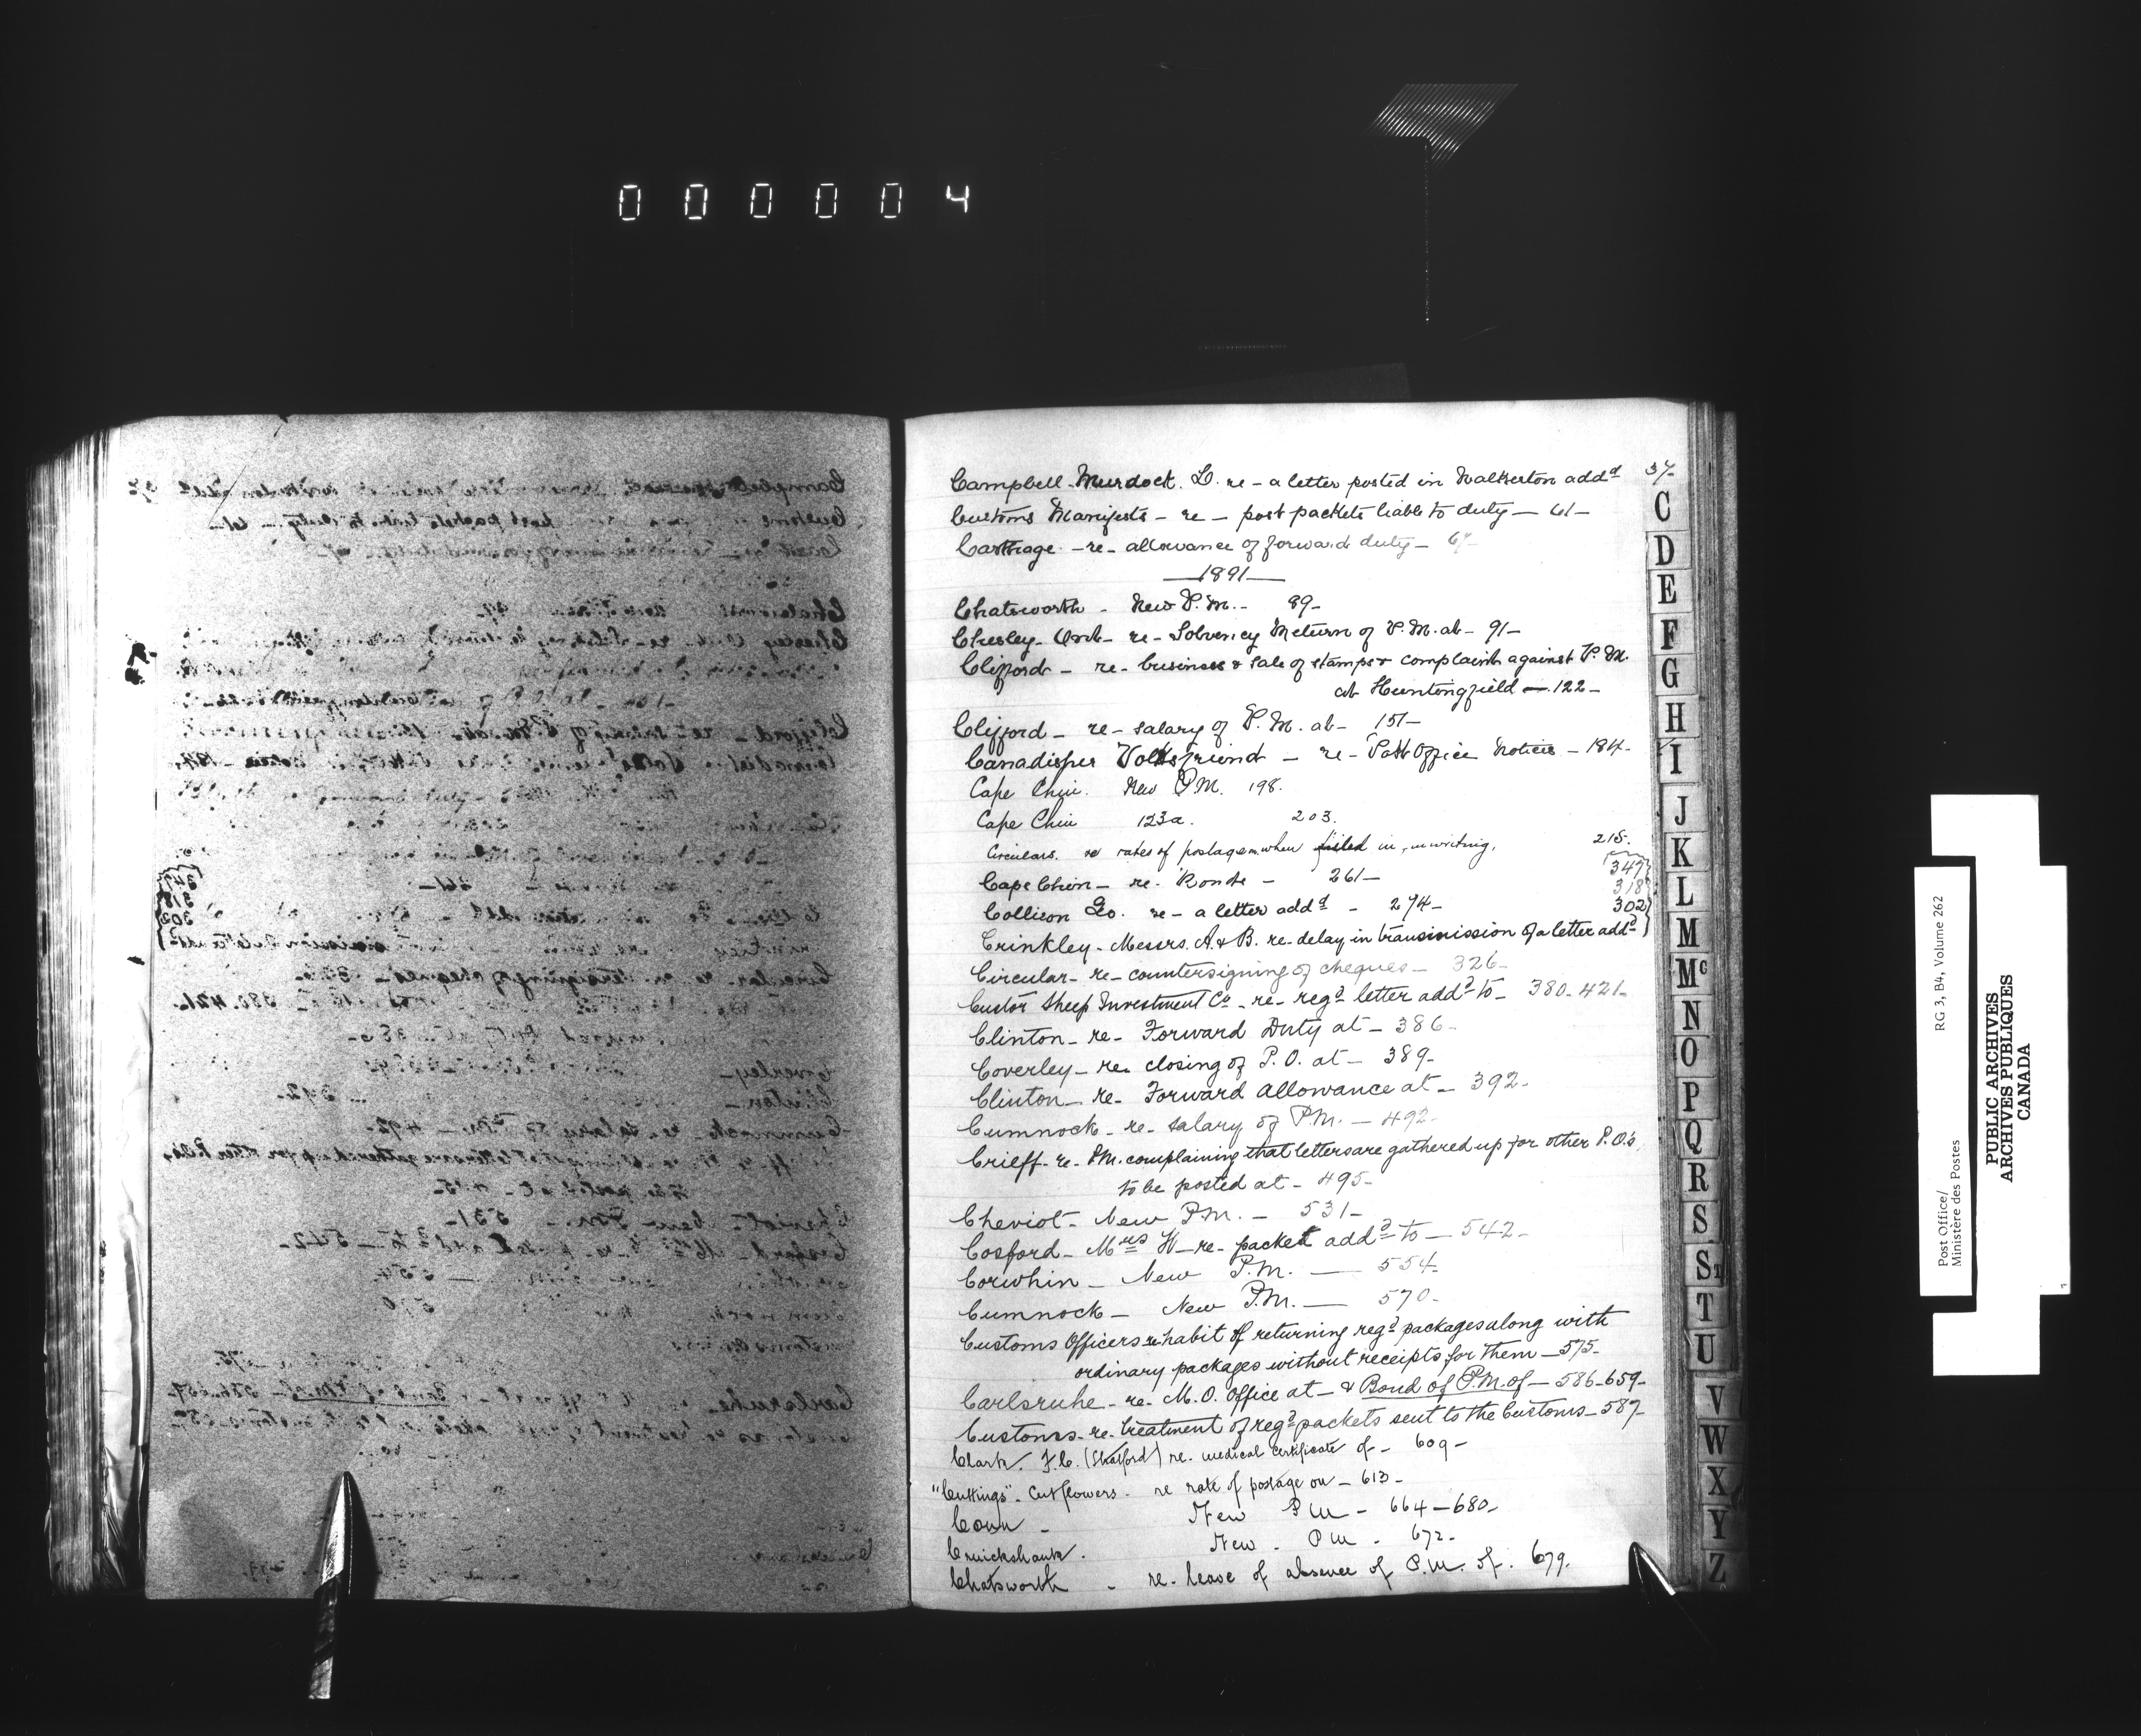 000004
Campbell. Murdock. D. re - a letter posted in Walkerton addd 37-
Customs Manifests - re - post packets liable to duty - 61-
Carthage - re - allowance of forward duty - 67-
-1891-
Chatsworth - New P.M. - 89-
Chesley - Ont - re - Solvency Return of P.M. at - 91-
Clifford - re - business & sale of stamps & complaint against P.M.
at Huntingfield - 122-
Clifford - re - salary of P.M. at - 151-
Canadisher Volksfreund - re - Post Office Notices - 184-
Cape Chin. New P.M. 198.
Cape Chin 123a. 203.
Circulars. re rates of postage on when filled in, in writing, 215.
Cape Chin - re - Ronde - 261-
Collison Geo. re - a letter addd - 274-
347
318
302
Crinkley - Messrs. A & B. re - delay in transmission of a letter addd
Circular - re - countersigning of cheques - 326-
Custor Sheep Investment Co - re - regd letter addd to - 380-421-
Clinton - re - Forward Duty at - 386-
Coverley - re - closing of P.O. at - 389-
Clinton - re - Forward allowance at - 392-
Cumnock - re - salary of P.M. - 492-
Crieff - re - P.M. complaining that letters are gathered up for other P.O.'s
to be posted at - 495-
Cheviot - New P.M. - 531-
Cosford - Mrs W - re - packet addd to - 542-
Corwhin - New P.M. - 554-
Cumnock - New P.M. - 570-
Customs Officers re habit of returning regd packages along with
ordinary packages without receipts for them - 575-
Carlsruhe - re - M.O. Office at - & Bond of P.M. of - 586-659-
Customs - re - treatment of regd packets sent to the Customs - 587-
Clark. F.C. (Stratford) re. medical certificate of - 609-
"Cuttings" - Cut flowers - re rate of postage on - 613-
Conn - New P M - 664-680-
Cruickshank. New - P M - 672-
Chatsworth - re - leave of absence of P.M. of. 679.
C
D
E
F
G
H
I
J
K
L
M
Mc
N
O
P
Q
R
S
St
T
U
V
W
X
Y
Z
Post Office/ RG 3, B4, Volume 262
Ministère des Postes
PUBLIC ARCHIVES
ARCHIVES PUBLIQUES
CANADA